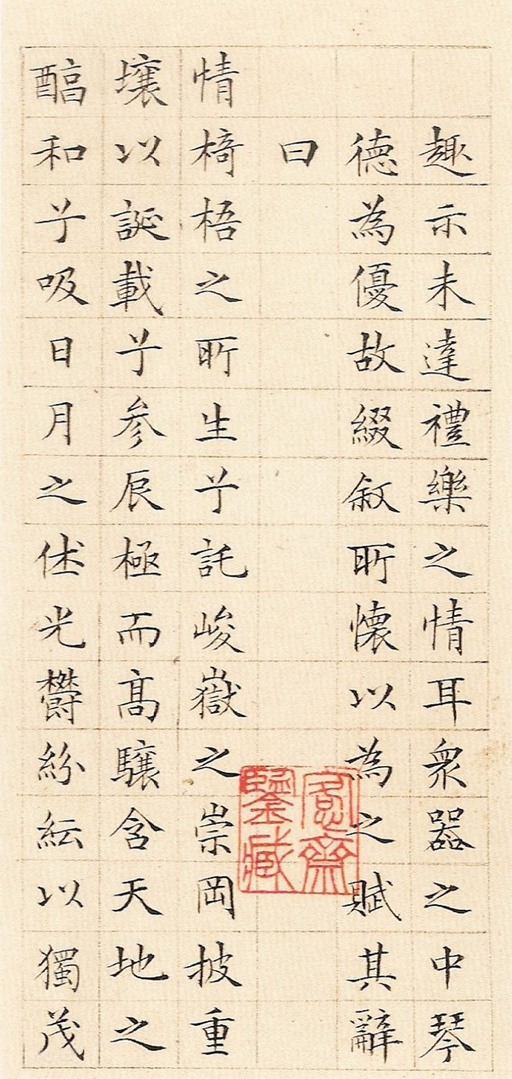 趣示未達禮樂之情耳衆器之中琴
德為優故綴叙所懷以為之賦其辭
曰
情椅梧之所生兮託峻嶽之崇岡披重
壤以誕載兮参辰極而髙驤含天地之
醕和兮吸日月之休光鬱紛紜以獨茂
齋鑒藏